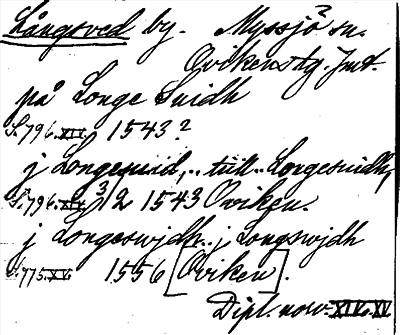 Långsved by. Myssjö sn.
Ovikens tg. Jmt.
på Longe Suidh
S. 796. XIV. 1543?
j Longesuid, .. till .. Longesuidh,
S. 796. XIV. 3/12 1543 Oviken.
j Longeswjdh .. j Longswjdh
S. 775. XV. 1556 [Oviken].
Dipl. norv. XIV. XV.